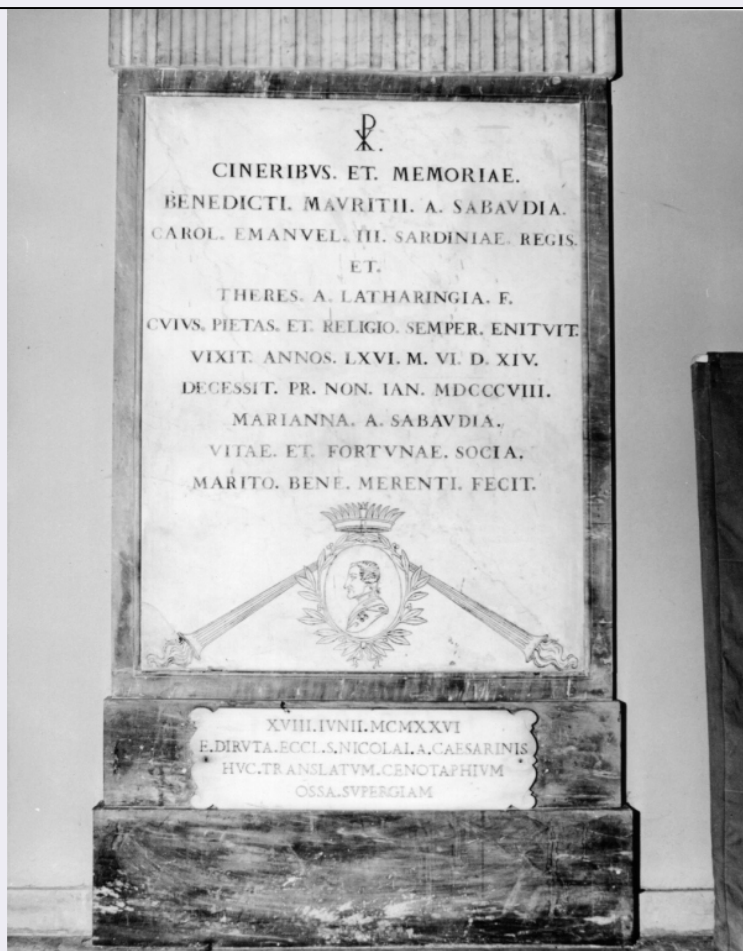 ☧.
CINERIBVS. ET. MEMORIAE.
BENEDICTI. MAVRITII. A. SABAVDIA.
CAROL. EMANVEL. III. SARDINIAE. REGIS.
ET.
THERES. A. LATHARINGIA. F.
CVIVS. PIETAS. ET. RELIGIO. SEMPER. ENITVIT.
VIXIT. ANNOS. LXVI. M. VI. D. XIV.
DECESSIT. PR. NON. IAN. MDCCCVIII.
MARIANNA. A. SABAVDIA.
VITAE. ET. FORTVNAE. SOCIA.
MARITO. BENE. MERENTI. FECIT.
XVIII.IVNII.MCMXXVI
E.DIRVTA.ECCL.S.NICOLAI.A.CAESARINIS
HVC.TRANSLATVM.CENOTAPHIVM
OSSA.SVPERGIAM